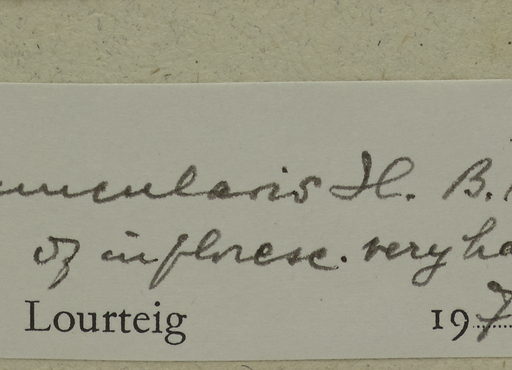 uncularis H. B.
of infloresc. very ha
Lourteig 197